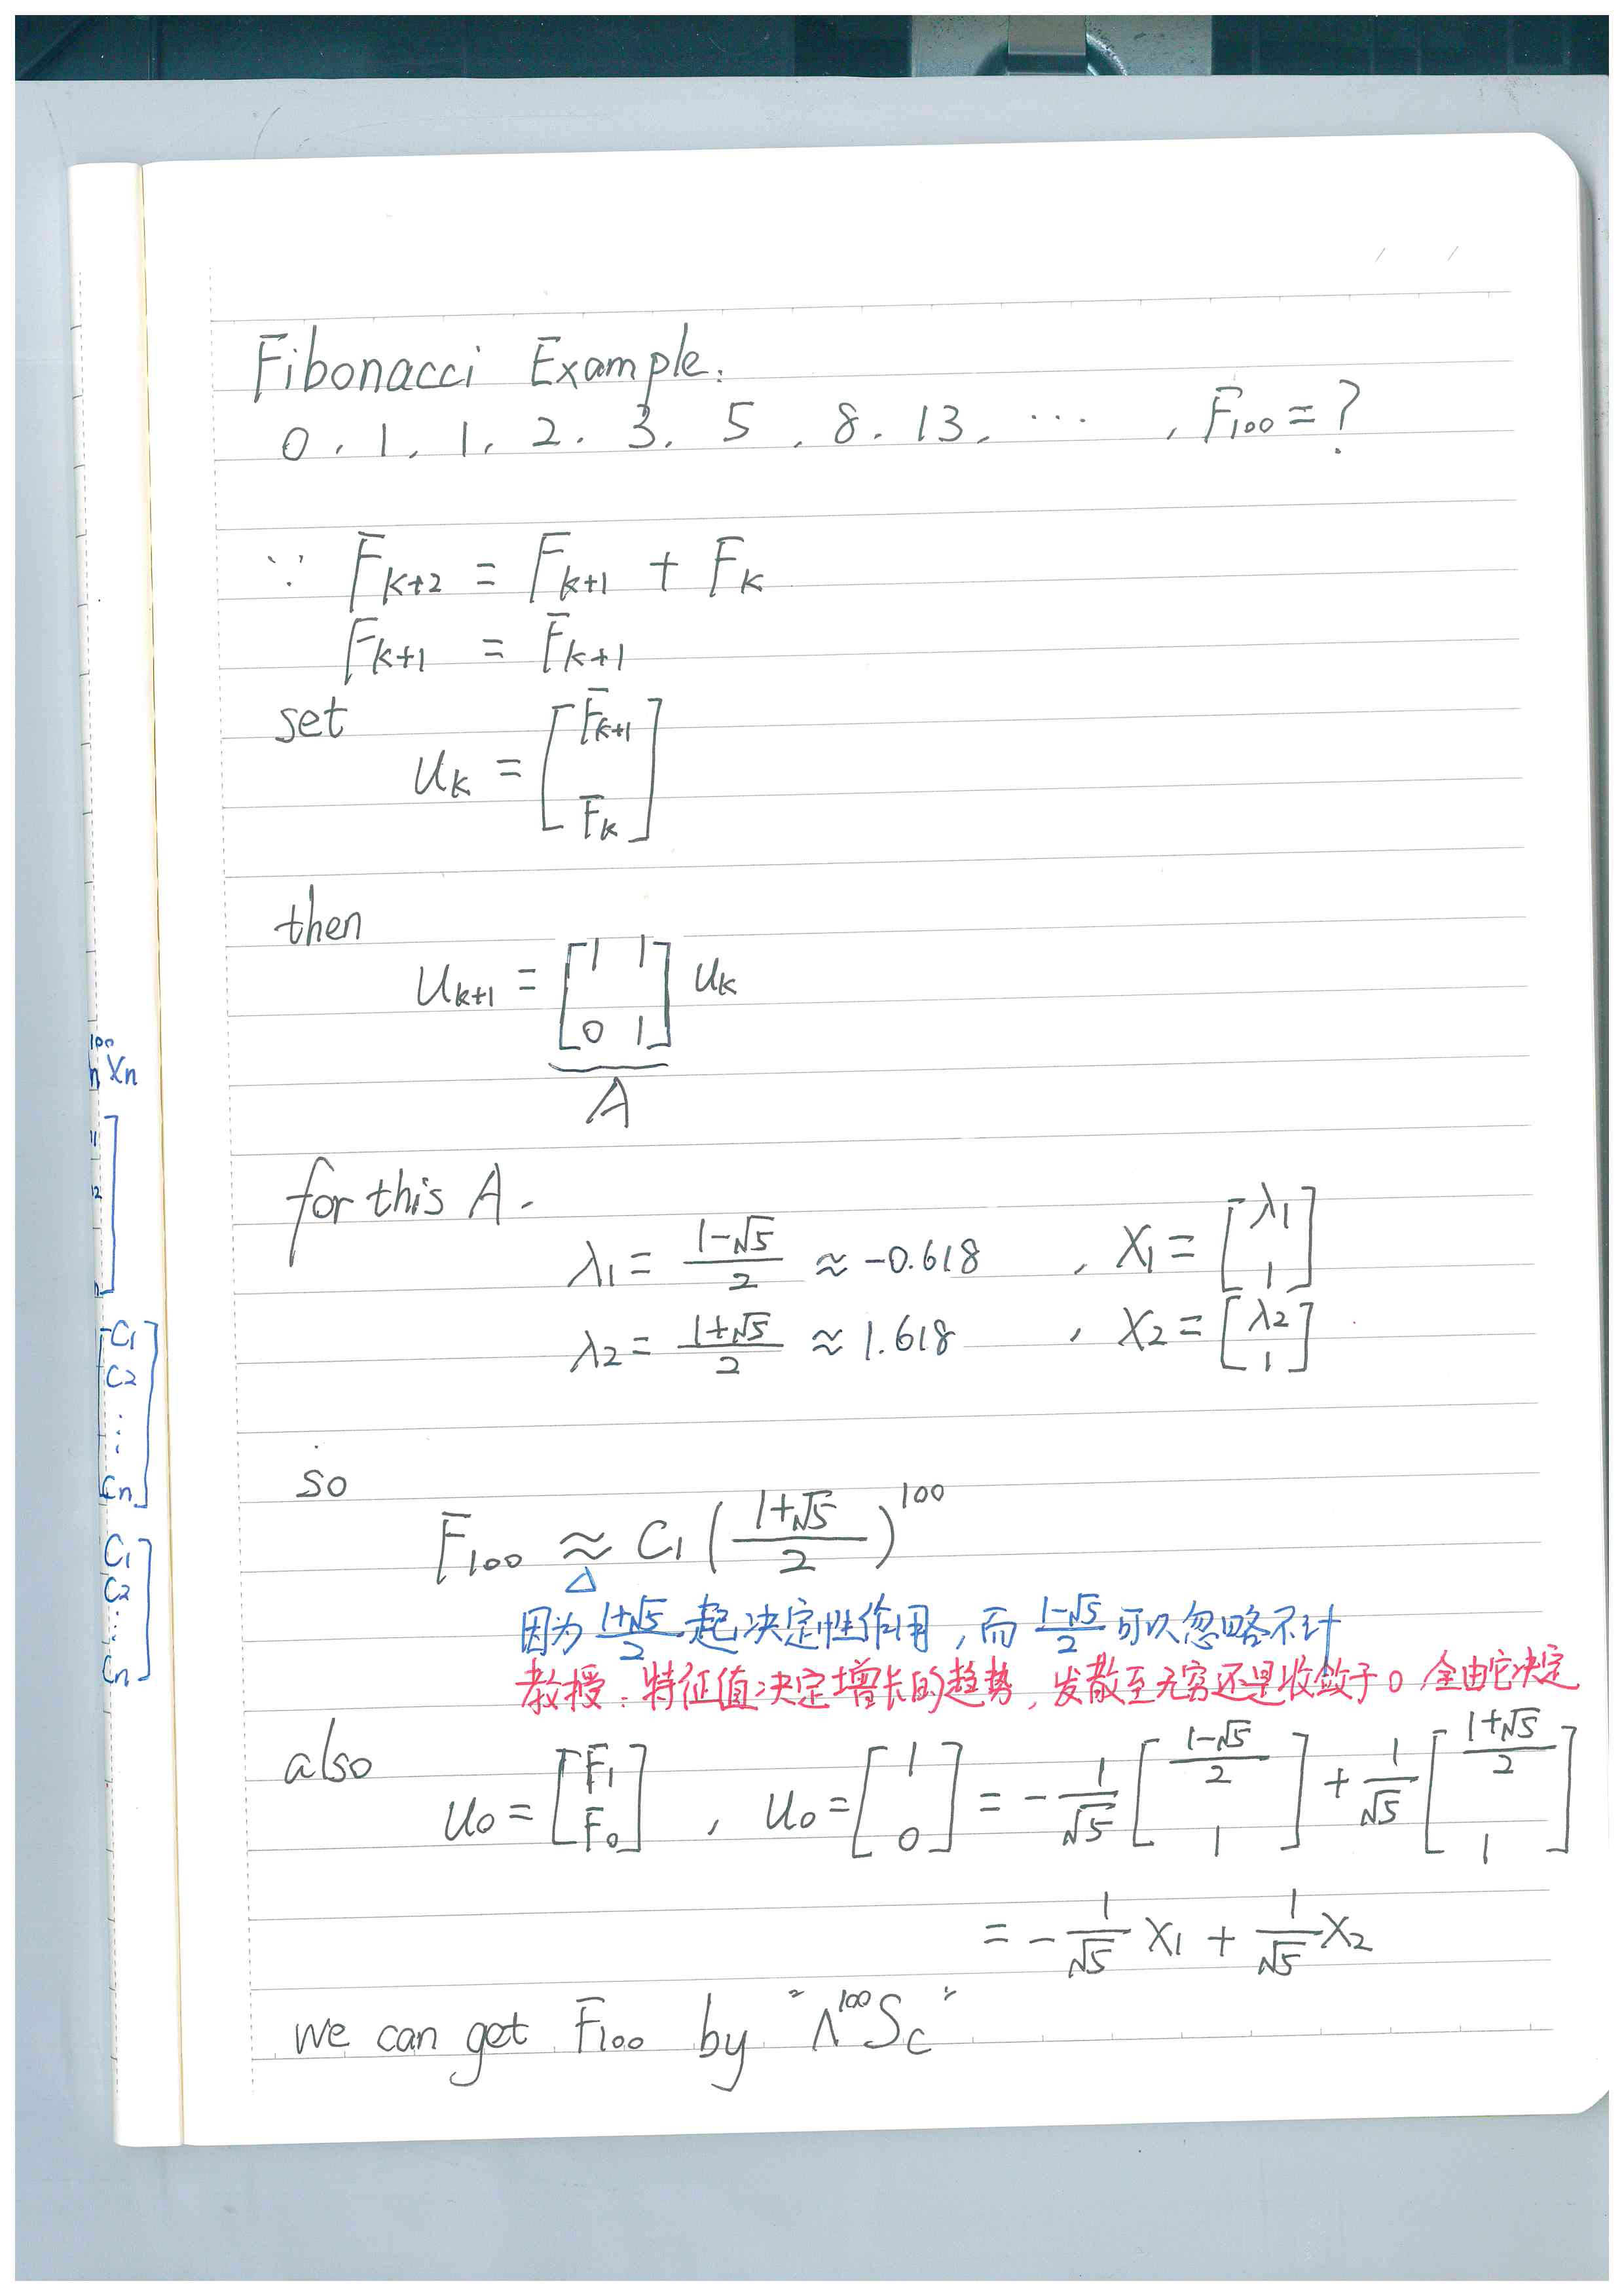 Fibonacci Example.
0, 1, 1, 2, 3, 5, 8, 13, ⋯ , F₁₀₀ = ?
∵ Fₖ₊₂ = Fₖ₊₁ + Fₖ
Fₖ₊₁ = Fₖ₊₁
set
uₖ = [Fₖ₊₁
Fₖ]
then
uₖ₊₁ = [1 1
0 1] uₖ
A
for this A.
λ₁ = (1-√5)/2 ≈ -0.618 , X₁ = [λ₁
1]
λ₂ = (1+√5)/2 ≈ 1.618 , X₂ = [λ₂
1]
so
F₁₀₀ ≈ C₁ ((1+√5)/2)¹⁰⁰
△
因为 (1+√5)/2 起决定性作用, 而 (1-√5)/2 可以忽略不计
教授: 特征值决定增长的趋势, 发散至无穷还是收敛于0 全由它决定
also
u₀ = [F₁
F₀] , u₀ = [1
0] = -1/√5 [(1-√5)/2
1] + 1/√5 [(1+√5)/2
1]
= -1/√5 X₁ + 1/√5 X₂
we can get F₁₀₀ by "Λ¹⁰⁰Sc"
100
Xn
C₁
C₂
⋮
Cn
C₁
C₂
⋮
Cn